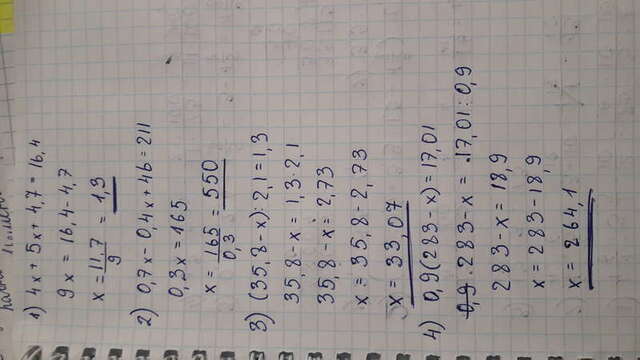 1) 4x + 5x + 4,7 = 16,4
9x = 16,4 - 4,7
x = 11,7/9 = 1,3
2) 0,7x - 0,4x + 46 = 211
0,3x = 165
x = 165/0,3 = 550
3) (35,8 - x) : 2,1 = 1,3
35,8 - x = 1,3 · 2,1
35,8 - x = 2,73
x = 35,8 - 2,73
x = 33,07
4) 0,9(283 - x) = 17,01
0,9 · 283 - x = 17,01 : 0,9
283 - x = 18,9
x = 283 - 18,9
x = 264,1